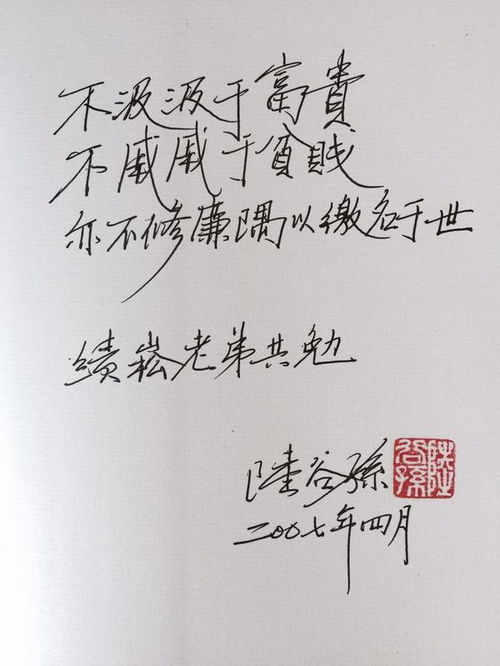 不汲汲于富貴
不戚戚于貧賤
亦不修廉隅以徼名于世
績崧老弟共勉
陸谷孫
陸谷孫
二〇〇七年四月